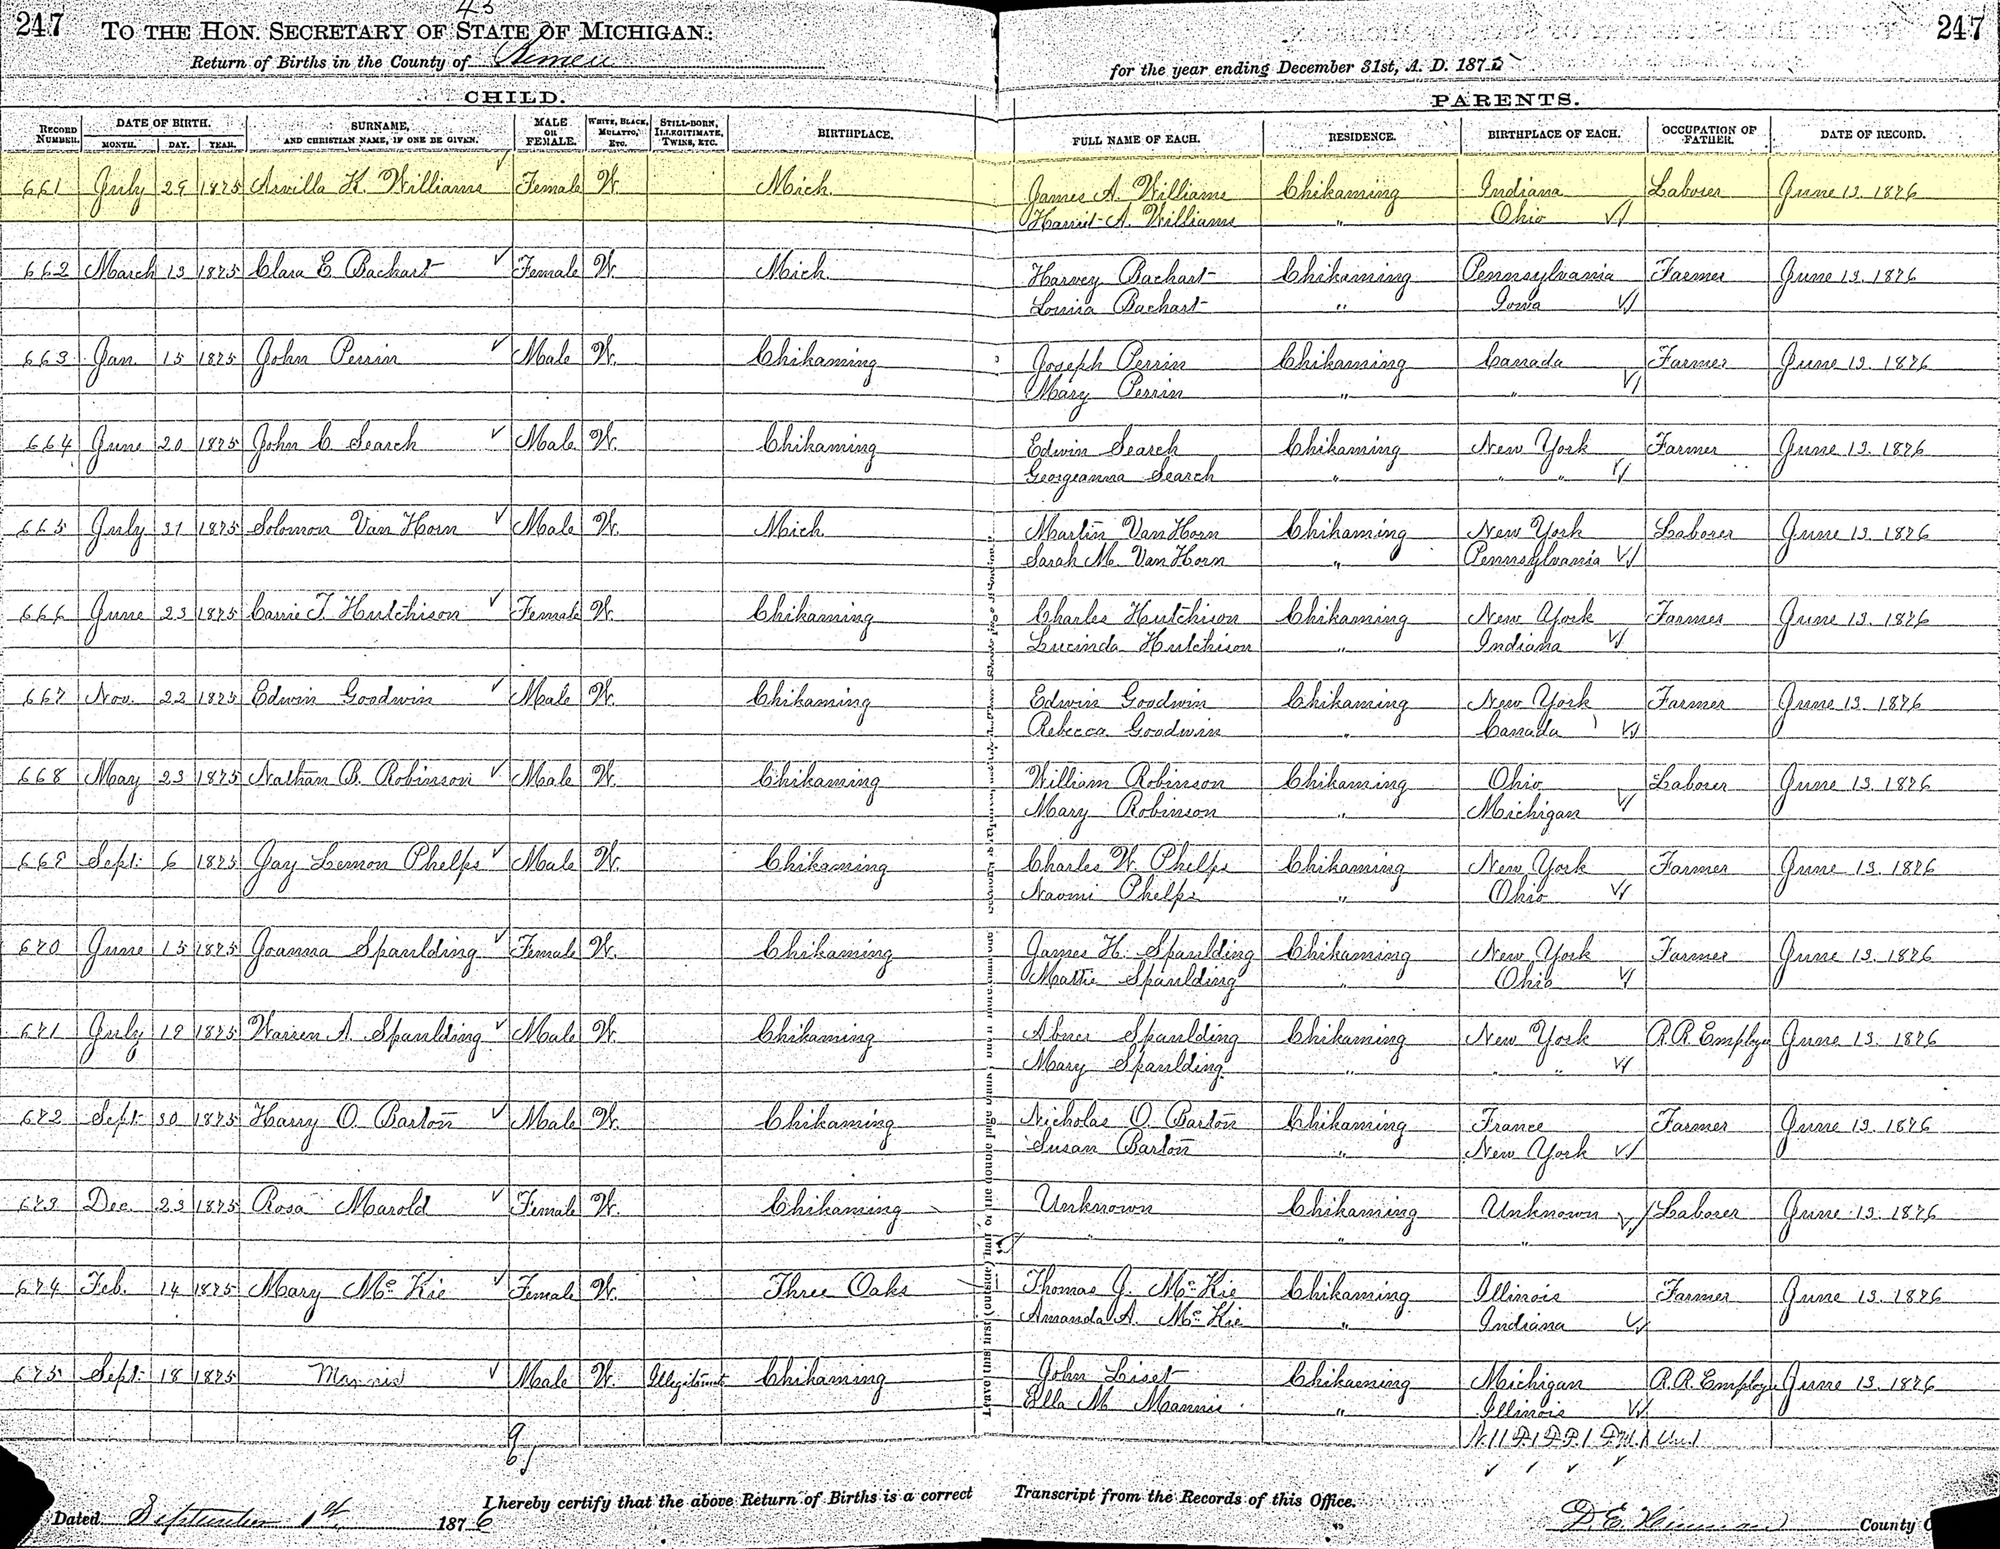 247 43 247
TO THE HON. SECRETARY OF STATE OF MICHIGAN:
Return of Births in the County of for the year ending December 31st, A. D. 1875
CHILD. PARENTS.
RECORD NUMBER. DATE OF BIRTH. MONTH. DAY. YEAR. SURNAME, AND CHRISTIAN NAME, IF ONE BE GIVEN. MALE OR FEMALE. WHITE, BLACK, MULATTO, ETC. STILL-BORN, ILLEGITIMATE, TWINS, ETC. BIRTHPLACE. FULL NAME OF EACH. RESIDENCE. BIRTHPLACE OF EACH. OCCUPATION OF FATHER. DATE OF RECORD.
661 July 29 1875 Arvilla H. Williams Female W. Mich. James A. Williams Chikaming Indiana Laborer June 13. 1876
Harriet A. Williams " Ohio
662 March 13 1875 Clara E Bachart Female W. Mich. Harvey Bachart Chikaming Pennsylvania Farmer June 13. 1876
Louisa Bachart " Iowa
663 Jan. 15 1875 John Perrin Male W. Chikaming Joseph Perrin Chikaming Canada Farmer June 13. 1876
Mary Perrin " "
664 June 20 1875 John C Search Male W. Chikaming Edwin Search Chikaming New York Farmer June 13. 1876
Georgeanna Search " " "
665 July 31 1875 Solomon Van Horn Male W. Mich. Martin Van Horn Chikaming New York Laborer June 13. 1876
Sarah M. Van Horn " Pennsylvania
666 June 23 1875 Carrie T. Hutchison Female W. Chikaming Charles Hutchison Chikaming New York Farmer June 13. 1876
Lucinda Hutchison " Indiana
667 Nov. 22 1875 Edwin Goodwin Male W. Chikaming Edwin Goodwin Chikaming New York Farmer June 13. 1876
Rebecca Goodwin " Canada
668 May 23 1875 Nathan B. Robinson Male W. Chikaming William Robinson Chikaming Ohio Laborer June 13. 1876
Mary Robinson " Michigan
669 Sept. 6 1875 Jay Lemon Phelps Male W. Chikaming Charles W. Phelps Chikaming New York Farmer June 13. 1876
Naomi Phelps " Ohio
670 June 15 1875 Joanna Spaulding Female W. Chikaming James H. Spaulding Chikaming New York Farmer June 13. 1876
Mattie Spaulding " Ohio
671 July 19 1875 Warren A. Spaulding Male W. Chikaming Abner Spaulding Chikaming New York R.R. Employe June 13. 1876
Mary Spaulding " " "
672 Sept. 30 1875 Harry O. Barton Male W. Chikaming Nicholas O. Barton Chikaming France Farmer June 13. 1876
Susan Barton " New York
673 Dec. 23 1875 Rosa Marold Female W. Chikaming Unknown Chikaming Unknown Laborer June 13. 1876
" " "
674 Feb. 14 1875 Mary McKie Female W. Three Oaks Thomas J. McKie Chikaming Illinois Farmer June 13. 1876
Amanda A. McKie " Indiana
675 Sept. 18 1875 Male W. Illegitimate Chikaming John Liset Chikaming Michigan R.R. Employe June 13. 1876
Ella M. Mannis " Illinois
9
6
I hereby certify that the above Return of Births is a correct Transcript from the Records of this Office.
Dated September 1st 1876 D. E. Hinman County